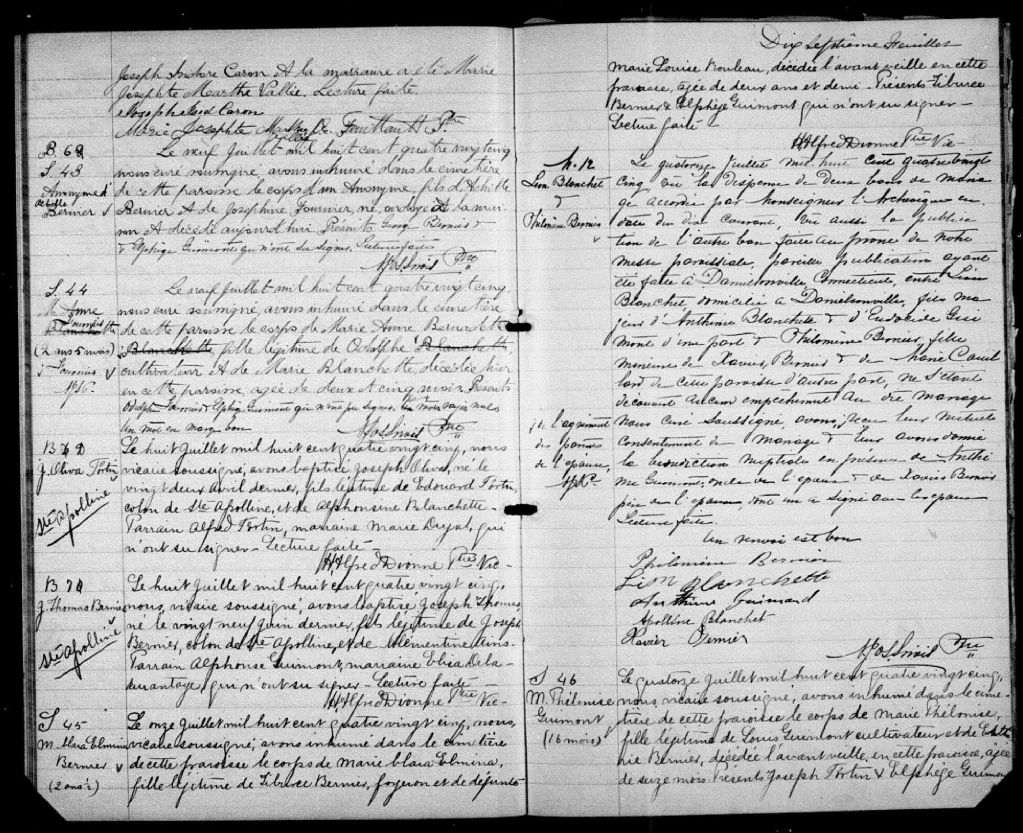 Joseph Isidore Caron & la marraine a été Marie
Josephte Marthe Vallée. Lecture faite
Marie Josephte
B 68
S. 43
Anonyme d'
Achille
Bernier
Le neuf Juillet mil huit cent quatre vingt cinq
nous curé soussigné, avons inhumé dans le cimetière
de cette paroisse le corps d'un Anonyme, fils d'Achille
Bernier & de Joséphine Fournier, né, ondoyé à la mai
son & décédé aujourd'hui. Présents Georges Bernier &
Elphège Guimont qui n'ont su signer. Lecture faite
Ptre
S. 44
M. Anne
Fournier
(2 ans 5 mois)
Le neuf Juillet mil huit cent quatre vingt cinq,
nous curé soussigné, avons inhumé dans le cimetière
de cette paroisse le corps de Marie Anne Bernadette
Blanchette, fille légitime de Odolphe Blanchette,
cultivateur & de Marie Blanchette, décédée hier
en cette paroisse, agée de deux et cinq mois. Présents
Odolphe Fournier & Elphège Guimont qui n'ont su signer. mots rayés nuls
Un mot en marge bon
Ptre
B 69
J. Oliva Fortin
Ste Apolline
Le huit Juillet mil huit cent quatre vingt cinq, nous
vicaire soussigné, avons baptisé Joseph Oliva, né le
vingt deux avril dernier, fils légitime de Edouard Fortin,
colon de Ste Apolline, et de Alphonsine Blanchette-
Parrain Alfred Fortin, marraine Marie qui
n'ont su signer - Lecture faite
H. Alfred Dionne Ptre Vic-
B 70
J. Thomas Bernier
Ste Apolline
Le huit Juillet mil huit cent quatre vingt cinq,
nous, vicaire soussigné, avons baptisé Joseph Thomas
né le vingt neuf Juin dernier, fils légitime de Joseph
Bernier, colon de Ste Apolline, et de Clémentine
Parrain Alphonse Guimont, marraine Elisa Dela-
durantaye qui n'ont su signer - Lecture faite -
H. Alfred Dionne Ptre Vic-
S 45
M. Clara Elmina
Bernier
(2 ans ½)
Le onze Juillet mil huit cent quatre vingt cinq, nous,
vicaire soussigné, avons inhumé dans le cimetière
de cette paroisse le corps de Marie Clara Elmina,
fille légitime de Tiburce Bernier, forgeron et de défunte
Dix Septième Feuillet
Marie Louise Rouleau, décédée l'avant veille en cette
paroisse, agée de deux ans et demi. Présents Tiburce
Bernier & Elphège Guimont qui n'ont su signer-
Lecture faite -
H. Alfred Dionne Ptre Vic-
M. 12
Léon Blanchet
&
Philomène Bernier
Le quatorze Juillet mil huit cent quatre vingt
cinq, vu la dispense de deux bans de maria
ge accordée par Monseigneur l'Archevêque en
date du dix courant, vu aussi la publica
tion de l'autre ban faite au prône de notre
messe paroissiale, pareille publication ayant
été faite à Danielsonville, Connecticut, entre Léon
Blanchet, domicilié à Danielsonville, fils ma
jeur d'Anthime Blanchette & d'Eudocide Gui
mont d'une part & Philomène Bernier, fille
mineure de Xavier Bernier & de Marie Caouil
lard de cette paroisse d'autre part, ne s'étant
découvert aucun empêchement au dit mariage
Nous curé soussigné, avons, reçu leur mutuel
consentement de mariage & leur avons donné
la bénédiction nuptiale en présence de Anthi
me Guimont, oncle de l'époux & de Xavier Bernier
père de l'épouse dont un a signé avec les époux
Lecture faite.
Un renvoi est bon
de l'agrément
des parents
de l'épouse
Philomène Bernier
Léon Blanchette
Anthime Guimond
Apolline Blanchet
Xavier Bernier
Ptre
S 46
M. Thélonise
Guimont
(16 mois)
Le quatorze Juillet mil huit cent quatre vingt cinq,
nous, vicaire soussigné, avons inhumé dans le cime-
tière de cette paroisse le corps de Marie Thélonise,
fille légitime de Louis Guimont cultivateur et de
Bernier, décédée l'avant veille, en cette paroisse, agée
de seize mois. Présents Joseph Fortin & Elphège Guimont